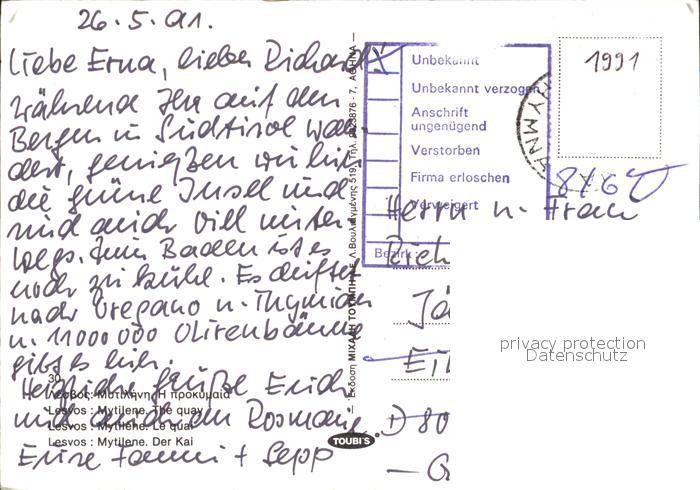 26.5.91.
Liebe Erna, lieber Richard!
während Ihr auf den
Bergen in Südtirol wan
dert, genießen wir hier
die grüne Insel und
sind auch viel unter
wegs. Zum Baden ist es
noch zu kühl. Es duftet
nach Oregano u. Thymian
u. 11000 000 Olivenbäume
gibt es hier.
Herzliche Grüße Euch
und auch an Rosmarie
Eure Fanni + Sepp
30
Λέσβος: Μυτιλήνη. Η προκυμαία
Lesvos : Mytilene. The quay
Lesvos : Mytilene. Le quai
Lesvos : Mytilene. Der Kai
Έκδοση ΜΙΧΑΛΗ ΤΟΥΜΠΗ Α.Ε. Λ. Βουλιαγμένης 519, Τηλ. 9923876 - 7, ΑΘΗΝΑ
TOUBI'S
Unbekannt
Unbekannt verzogen
Anschrift
ungenügend
Verstorben
Firma erloschen
Verweigert
Bezirk:
1991
Herrn u. Frau
Rich
Jä
D 80
privacy protection
Datenschutz